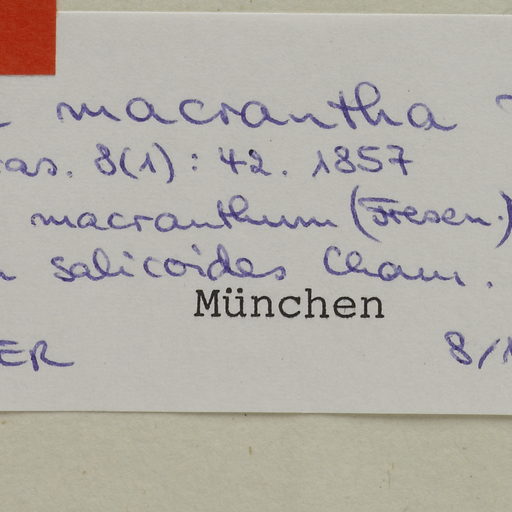 macrantha
as. 8(1): 42. 1857
macranthum (Fresen.)
salicoides Cham.
München
ER 8/1